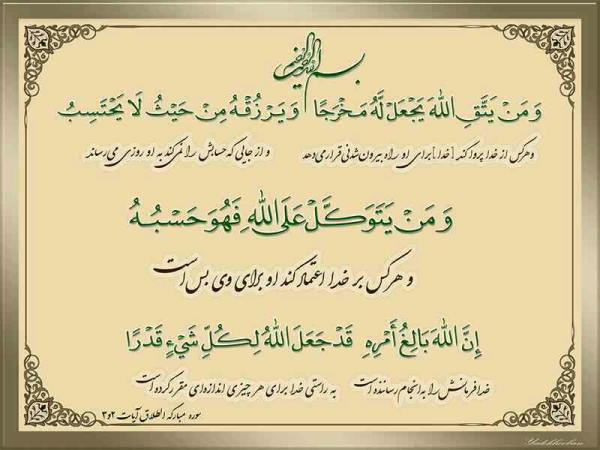 بسم الله الرحمن الرحيم
وَمَنْ يَتَّقِ اللَّهَ يَجْعَلْ لَهُ مَخْرَجًا وَيَرْزُقْهُ مِنْ حَيْثُ لَا يَحْتَسِبُ
و هرکس از خدا پروا کند [خدا] برای او راه بیرون شدنی قرار می‌دهد و از جایی که حسابش را نمی‌کند به او روزی می‌رساند
وَمَنْ يَتَوَكَّلْ عَلَى اللَّهِ فَهُوَ حَسْبُهُ
و هرکس بر خدا اعتماد کند او برای وی بس است
إِنَّ اللَّهَ بَالِغُ أَمْرِهِ قَدْ جَعَلَ اللَّهُ لِكُلِّ شَيْءٍ قَدْرًا
خدا فرمانش را به انجام رساننده است به راستی خدا برای هر چیزی اندازه‌ای مقرر کرده است
سوره مبارکه الطلاق آیات ۲و۳